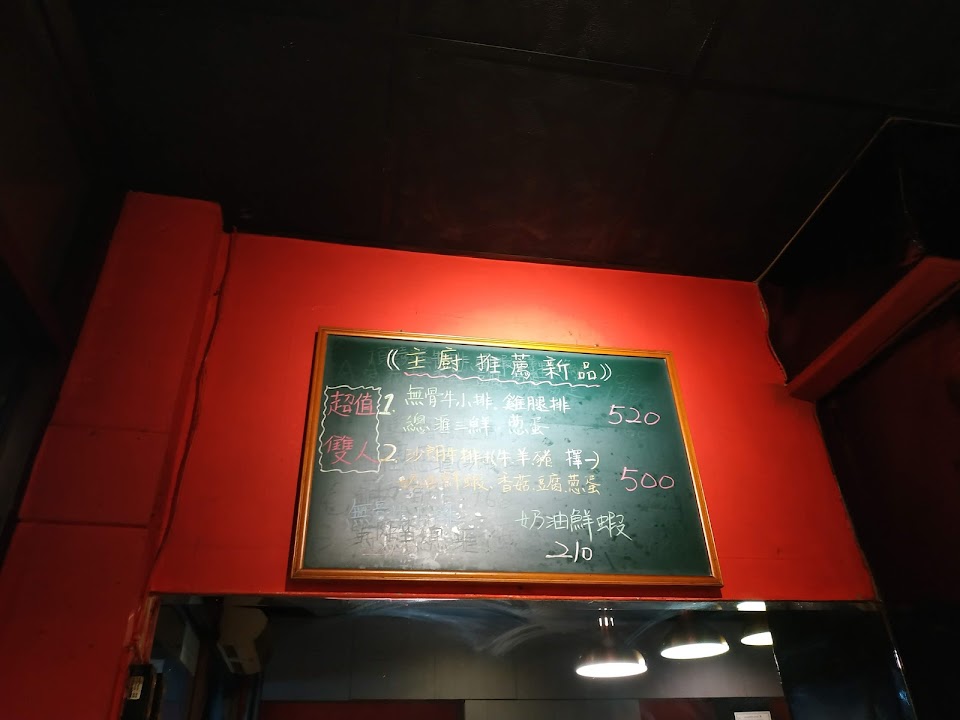 《主廚推薦新品》
超值
雙人
1. 無骨牛小排、雞腿排
總滙三鮮、蔥蛋
520
2. 沙朗牛排
(牛羊豬 擇一)
鮮蝦、香菇、豆腐、蔥蛋
500
奶油鮮蝦
210